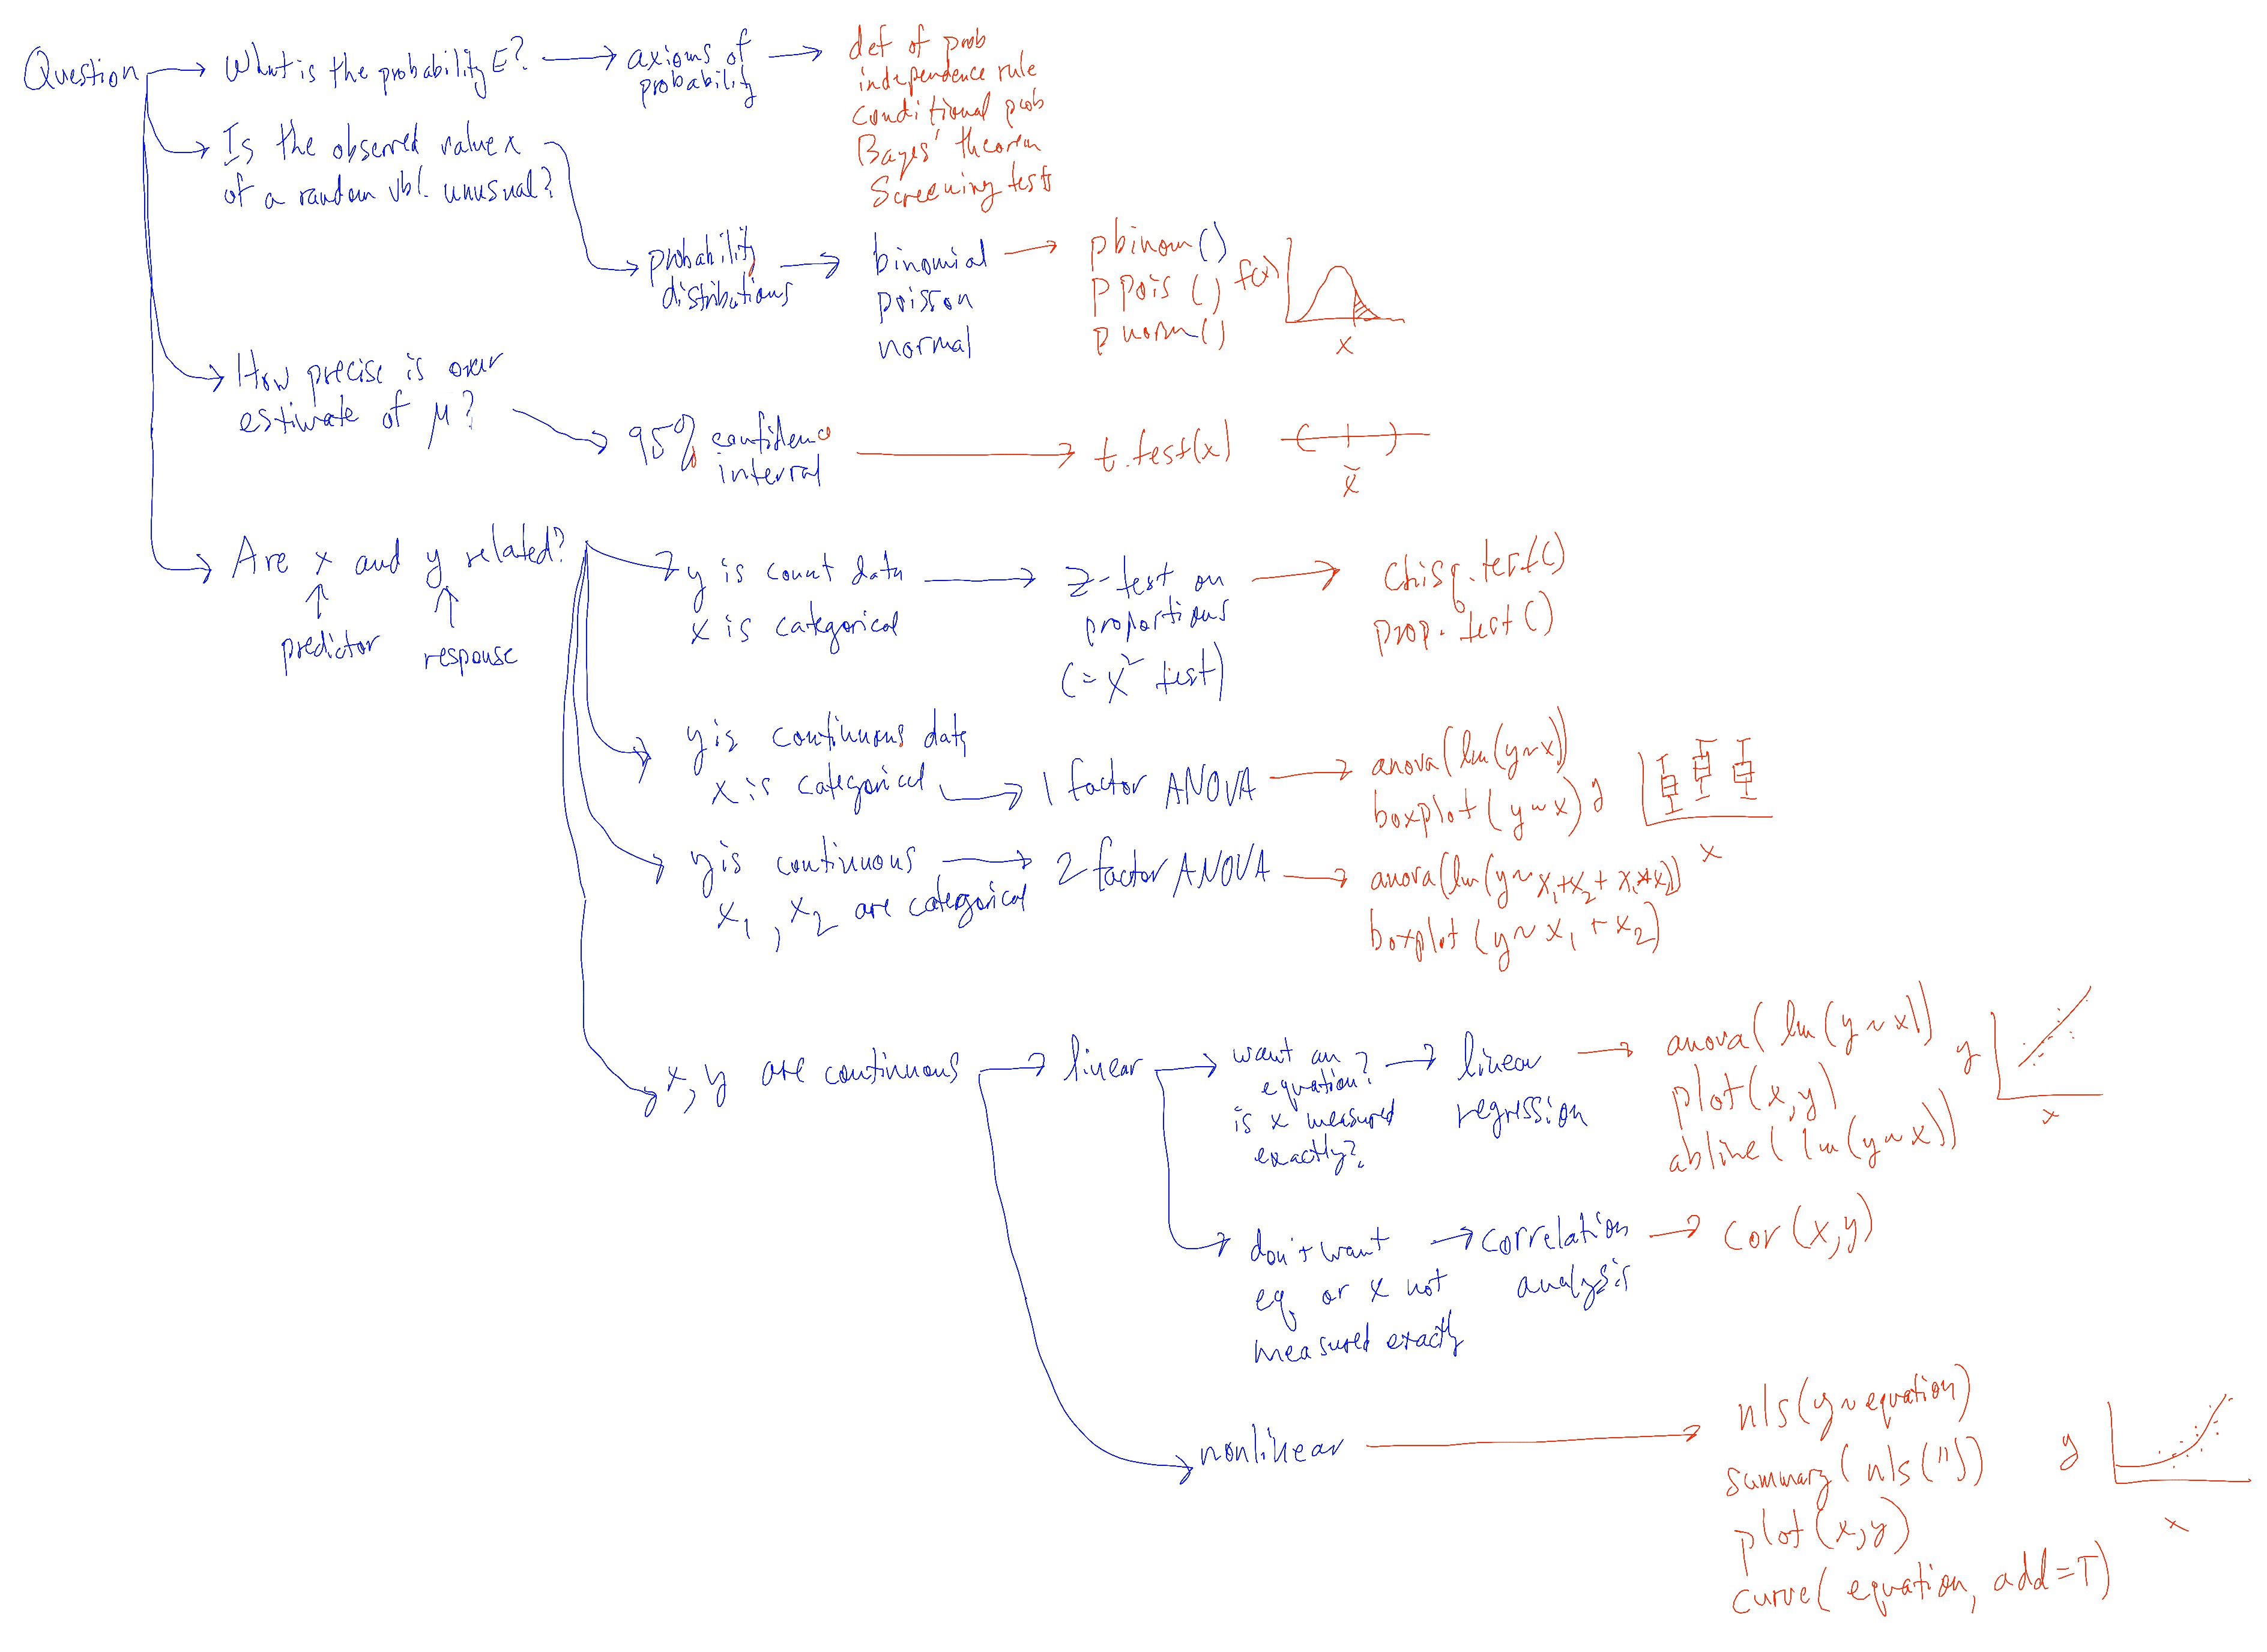 Question
What is the probability E?
axioms of
probability
def of prob
independence rule
conditional prob
Bayes' theorem
Screening tests
Is the observed value x
of a random vbl. unusual?
probability
distributions
binomial
poisson
normal
pbinom()
ppois()
pnorm()
f(x)
x
How precise is our
estimate of μ?
95% confidence
interval
t.test(x)
x̄
Are x and y related?
predictor
response
y is count data
x is categorical
z-test on
proportions
(= χ² test)
chisq.test()
prop.test()
y is continuous data
x is categorical
1 factor ANOVA
anova(lm(y~x))
boxplot(y~x)
y
x
y is continuous
x₁, x₂ are categorical
2 factor ANOVA
anova(lm(y~x₁+x₂+x₁*x₂))
boxplot(y~x₁+x₂)
x, y are continuous
linear
want an
equation?
is x measured
exactly?
linear
regression
anova(lm(y~x))
plot(x,y)
abline(lm(y~x))
y
x
don't want
eq or x not
measured exactly
correlation
analysis
cor(x,y)
nonlinear
nls(y~equation)
summary(nls("))
plot(x,y)
curve(equation, add=T)
y
x